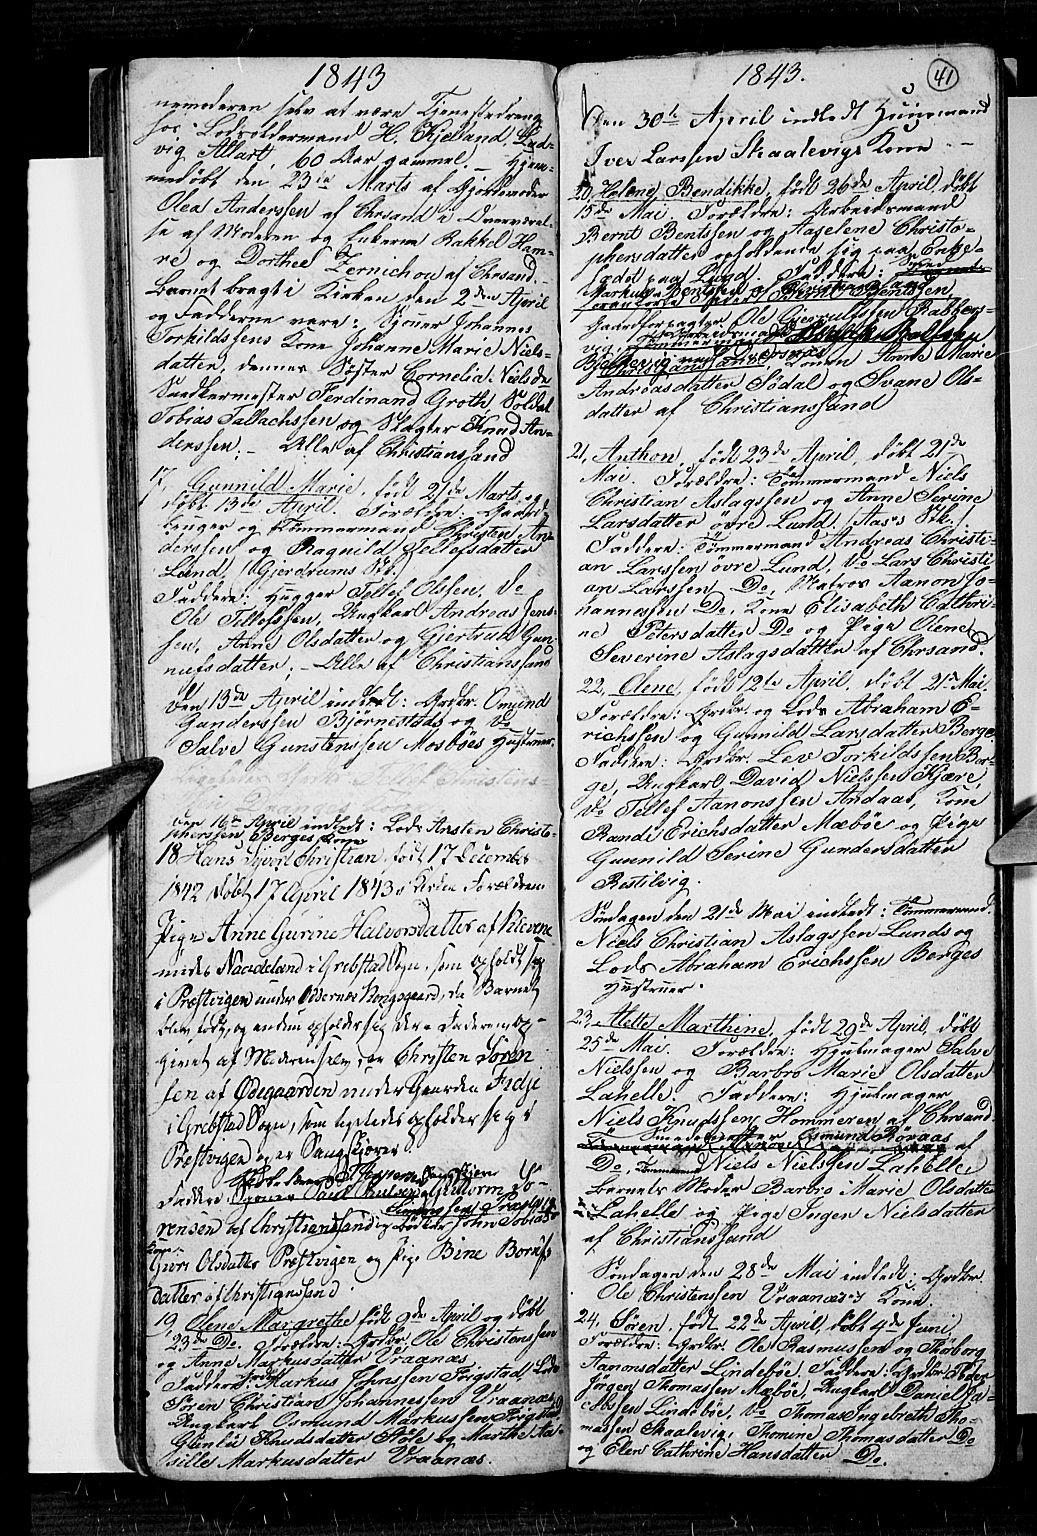 1843
nemoderen selv at være Tjenestedreng
hos Lodsoldermand H. Kjelland, Lud-
vig Allart, 60 Aar gammel. – Hjem-
medöbt den 23de Marts af Gjordemoder
Olea Anderssen af Chrsand i Overværel-
se af Moderen og Enkerne Rakkel Ham-
re og Dorthea Zernichou af Chrsand.
Barnet bragt i Kirken den 2den April
og Fadderne vare: Skouer Johannes
Torkildssens Kone Johanne Marie Niels-
datter, dennes Söster Cornelia Nielsdr
Snedkermester Ferdinand Groth Soldat
Tobias Tallachssen og Slagter Knud An-
derssen. – Alle af Christianssand
17, Gunnild Marie, födt 21de Marts og
döbt 13de April. Forældre: Gaard-
bruger og Tömmermand Christen An-
derssen og Ragnild Tellefsdatter
Lund, (Gjerdrums Stk.)
Faddere: Hugger Tellef Olssen, Do
Ole Tellefssen, Ungkarl Andreas Jens-
sen, Anne Olsdatter og Gjertrud Gun-
nufsdatter; – Alle af Christianssand
Den 13de April indledt: Grdbr. Omund
Gunderssen Björnestads og Do
Salve Gunstenssen Mosböes Hustruer.
Den 16de April indledt: Lods Ansten Christo-
pherssen Berges Kone
18 Hans Sivert Christian, födt 17 December
1842 döbt 17 April 1843 i Kirken Forældre
Pige Anne Gurine Halvorsdatter af Klevene
under Naadeland i Grebstad Sogn, som opholdt sig
i Præstvigen under Oddernes Kongsgaard, da Barnet
blev födt, og endnu opholder sig der. Faderen op-
givet af Moderen selv er Christen Sören
sen af Ödegaarden under Gaarden Fidje
i Grebstad Sogn, som ligeledes opholder sig i
Præstvigen og er Saugskjörer.
rensen af Christianssand og John Tobias
Kone
Guri Olsdatter Præstvigen og Pige Bine Bernts
datter af Christianssand.
19, Olene Margrethe födt 9de April og döbt
23de Do. Forældre: Grdbr. Ole Christenssen
og Anne Markusdatter Vraanæs
Faddere: Markus Johnssen Frigstad, Lods
Sören Christian Johannessen Vraanæs,
Ungkarl Osmund Markussen Frigstad
Gunlu Knudsdatter Stöle og Marthe Aa-
sille Markusdatter Vraanæs.
1843.
41
Den 30te April indledt Huusmand
Iver Larssen Skaalevigs Kone
20, Helene Bendikke, födt 26de April, döbt
15de Mai. Forældre: Arbeidsmand
Bernt Bentssen og Aaselene Christo-
phersdatter opholdende sig paa Enke-
sædet paa Lund. Faddere:
Gaardforpagter Ole Gjeruldssen Rabbers-
vig
Andreasdatter Södal og Svane Ols-
datter af Christianssand
21, Anthon, födt 23de April, döbt 21de
Mai. Forældre: Tömmermand Niels
Christian Aslagssen og Anne Serine
Larsdatter övre Lund. (Aas's Stk.)
Faddere: Tömmermand Andreas Christi-
an Larssen övre Lund, Do Lars Christi
an Larssen Do, Matros Aanon Jo-
hannessen Do, Kone Elisabeth Cathri-
ne Petersdatter Do og Pige Olene
Severine Aslagsdatter af Chrsand.
22, Olene, födt 12te April, döbt 21de Mai.
Forældre: Grdbr. og Lods Abraham E-
richssen og Gunnild Larsdatter Berge.
Faddere: Grdbr. Lev Torkildssen Ber-
ge, Ungkarl David Nielssen Kjære,
Do Tellef Aanonssen Andaas, Kone
Randi Erichsdatter Mæböe og Pige
Gunnild Serine Gundersdatter
Restilvig.
Söndagen den 21de Mai indledt: Tömmermand
Niels Christian Aslagssen Lunds og
Lods Abraham Erichssen Berges
Hustruer.
23, Alette Marthine, födt 29de April, döbt
25de Mai. Forældre: Hjulmager Salve
Nielssen og Barbro Marie Olsdatter
Lahelle. Faddere: Hjulmager
Niels Knudssen Hommeren af Chrsand
Osmund Röraas
af
Do, Niels Nielssen Lahelle,
Barnets Moder Barbro Marie Olsdatter
Lahelle og Pige Inger Nielsdatter
af Christianssand
Söndagen den 28de Mai indledt: Grdbr.
Ole Christenssen Vraanæs's Kone
24, Sören, födt 22de April, döbt 4de Juni,
Forældre: Grdbr. Ole Rasmussen og Thorborg
Aanonsdatter Lindeböe. Faddere: Grdbr. Peder
Jörgen Thomassen Mæböe, Ungkarl Daniel Ja-
cobsen Lindeböe, Do Thomas Ingebreth Tho-
massen Skaalevig, Thomine Thomasdatter Do
og Elen Cathrine Hansdatter Do.